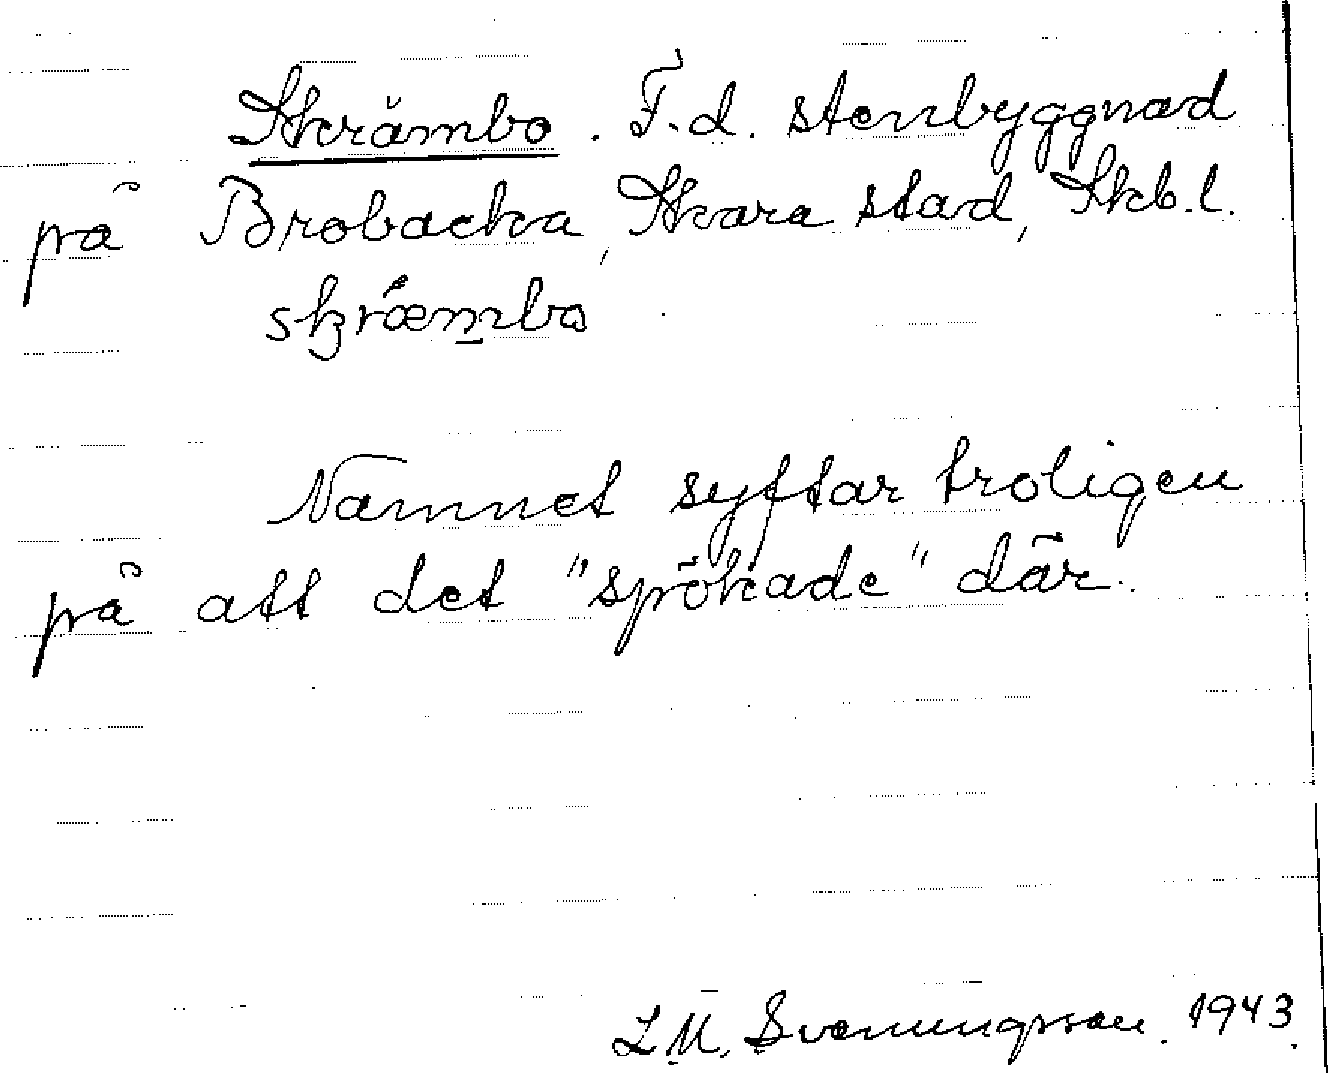 Skrämbo. F.d. stenbyggnad
på Brobacka, Skara stad, Skb.l.
skræmbo
Namnet syftar troligen
på att det "spökade" där.
L M. Svenungsson. 1943.